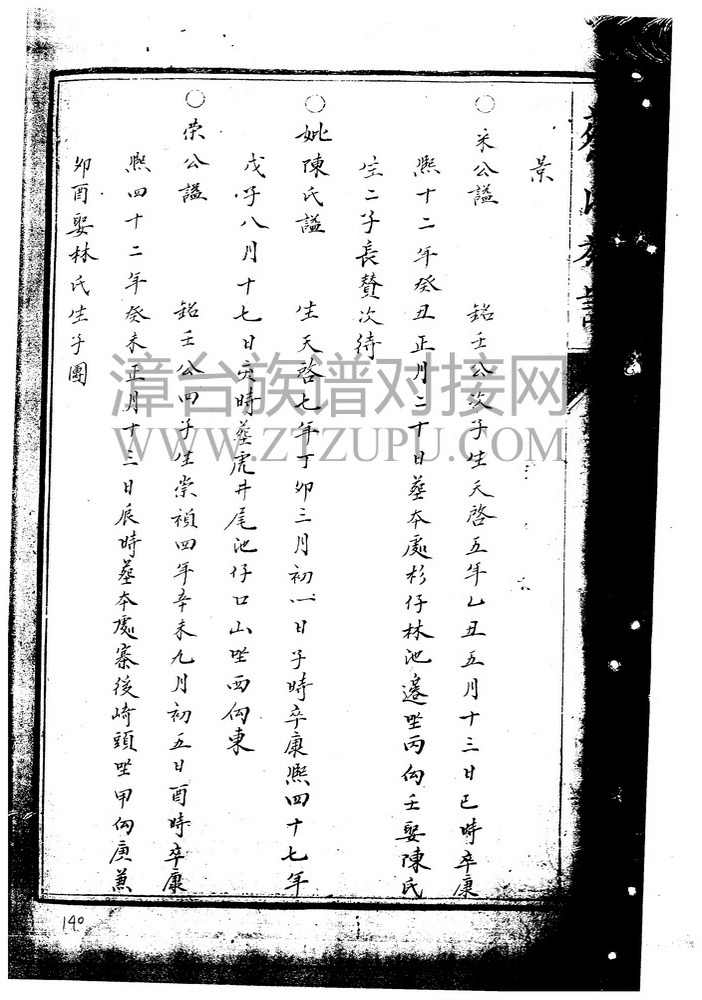 景
○ 采公諡 銘壬公次子生天啓五年乙丑五月十三日巳時卒康
熙十二年癸丑正月二十日墓本處杉仔林池邊坐丙向壬娶陳氏
生二子長贊次待
○ 妣陳氏諡 生天啓七年丁卯三月初一日子時卒康熙四十七年
戊子八月十七日亥時墓虎井尾池仔口山坐西向東
○ 榮公諡 銘壬公四子生崇禎四年辛未九月初五日酉時卒康
熙四十二年癸未正月十三日辰時墓本處寨後崎頭坐甲向庚兼
卯酉娶林氏生子團
漳台族谱对接网
WWW.ZTZUPU.COM
140